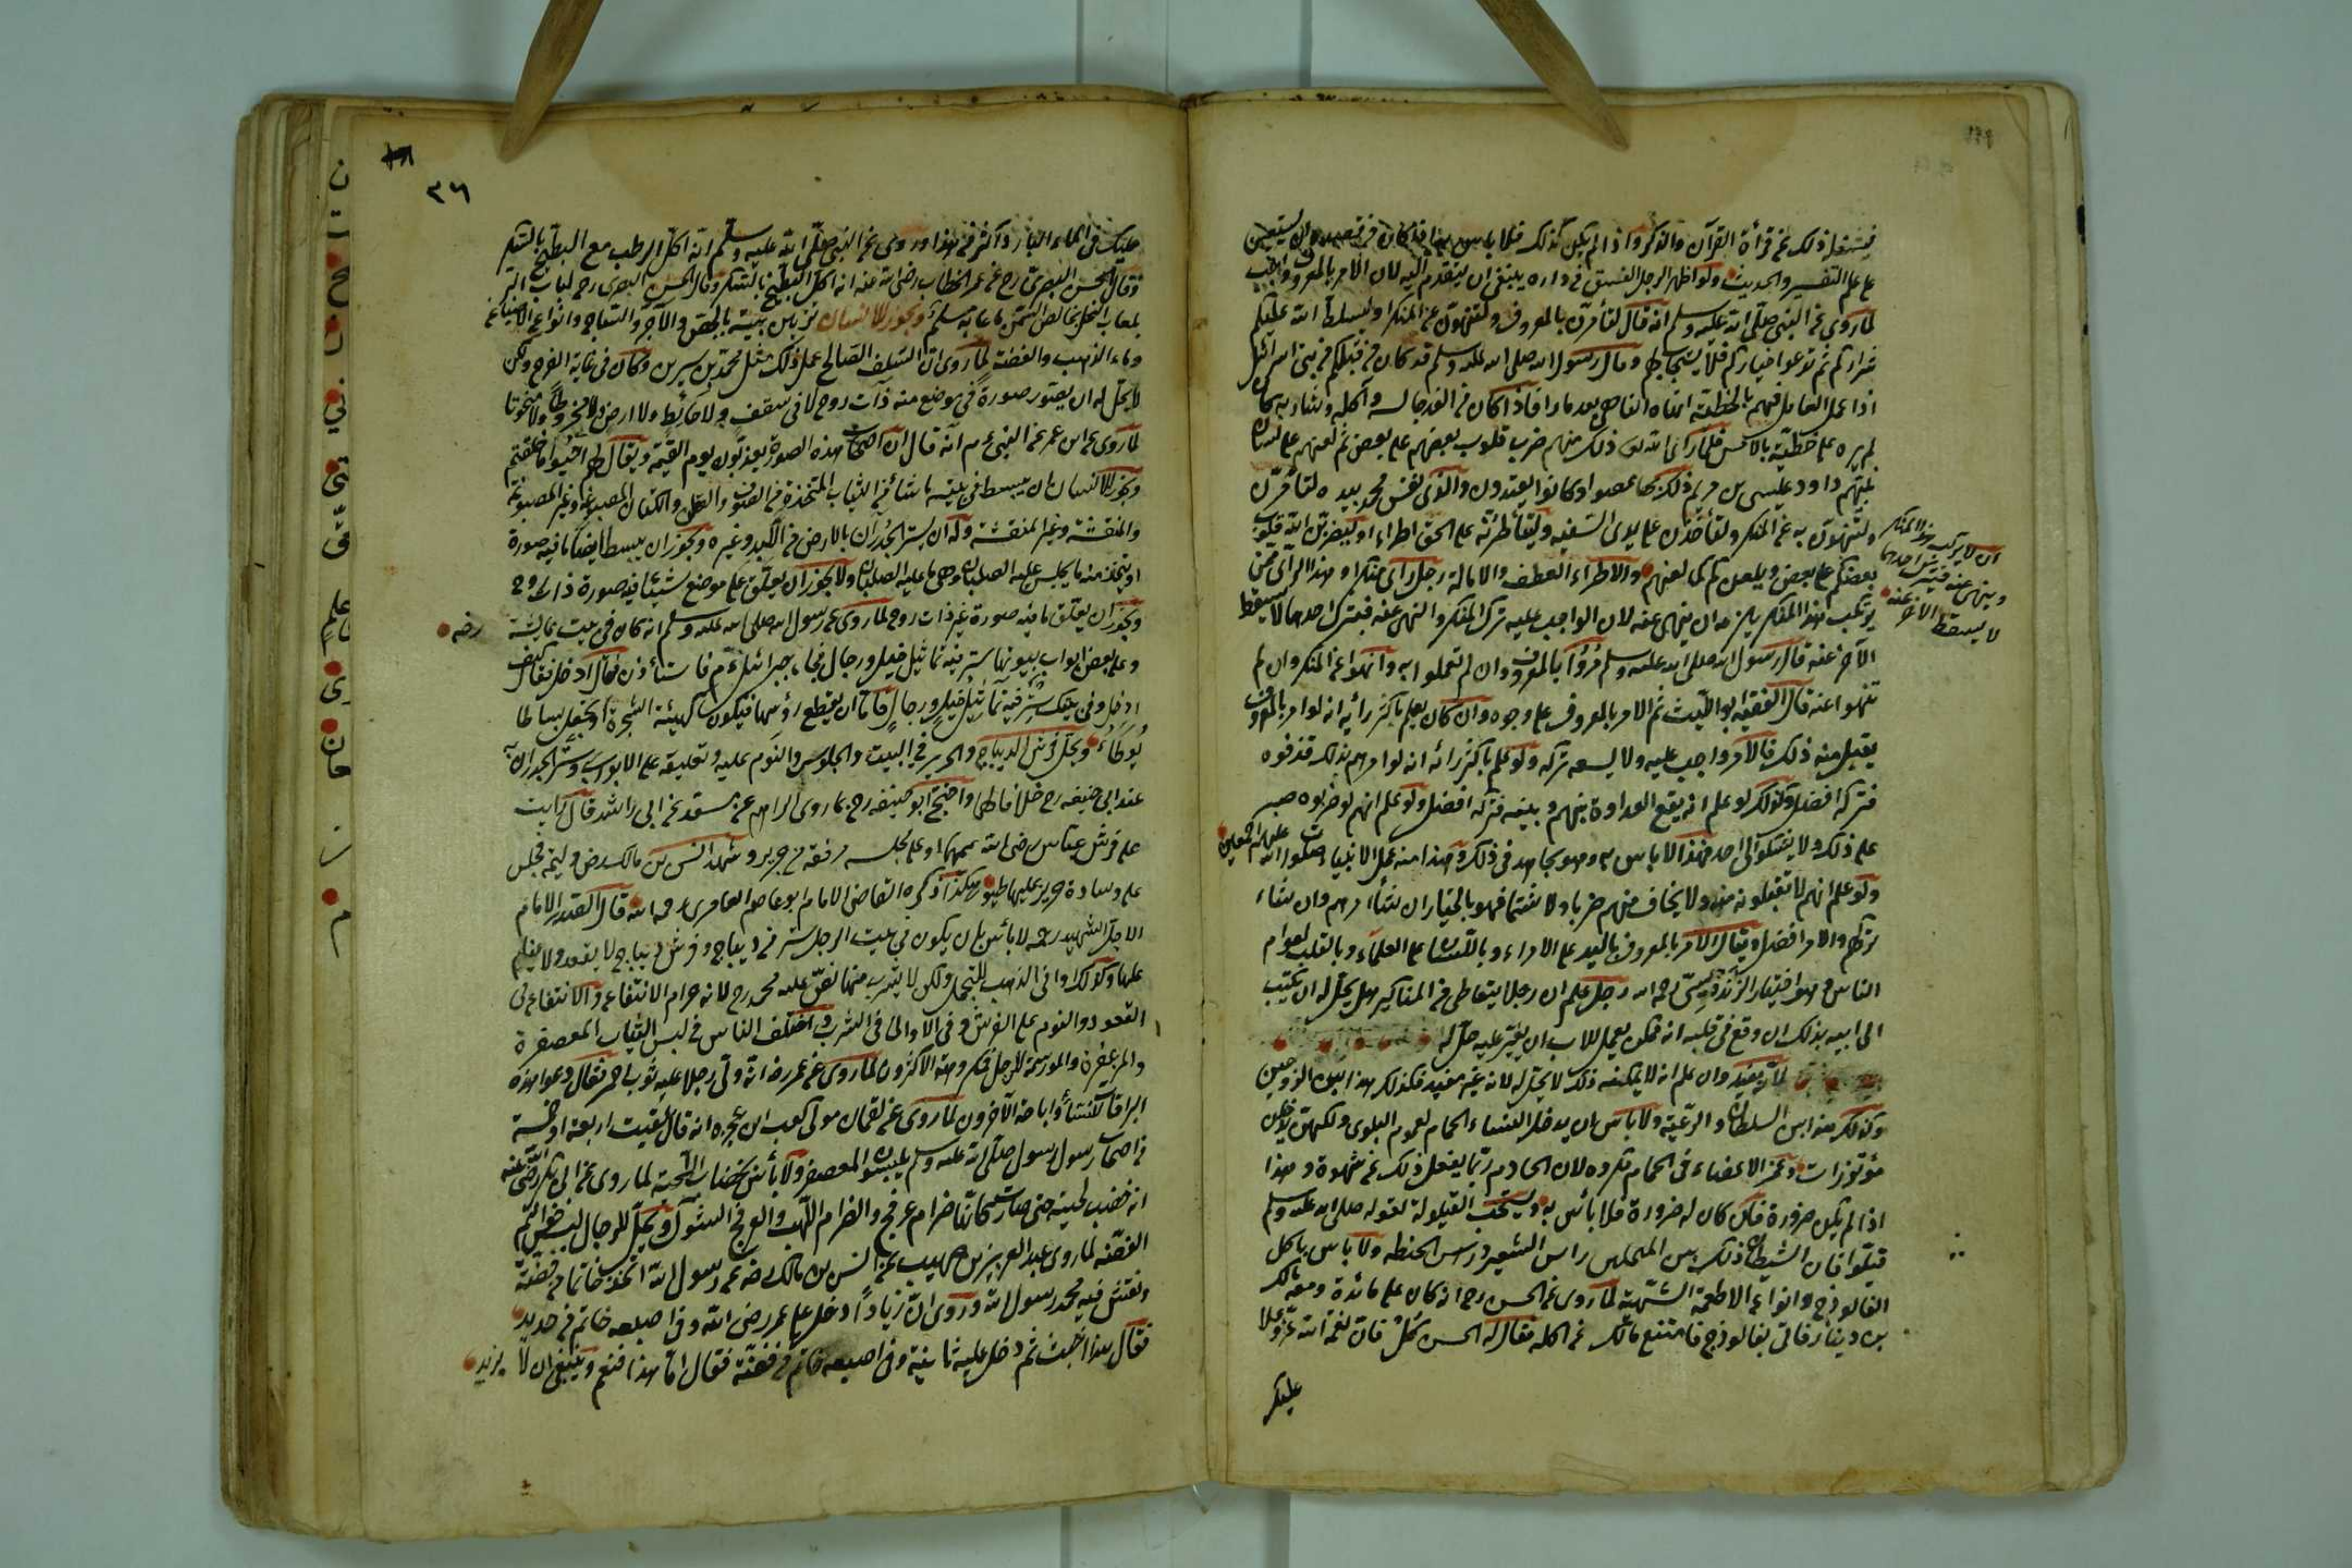 فيشغله ذلك عن قرأة القرآن والذكر واذا لم يكن كذلك فلا باس به اذا كان من قصده ان يستعين
على علم التفسير والحديث ولو اظهر الرجل الفسق في داره ينبغي ان يتقدم اليه لان الامر بالمعروف واجب
لما روي عن النبي صلى الله عليه وسلم انه قال لتأمرن بالمعروف ولتنهون عن المنكر او ليسلطن الله عليكم
شراركم ثم تدعوا خياركم فلا يستجاب لهم وقال رسول الله صلى الله عليه وسلم قد كان من قبلكم من بني اسرائيل
اذا عمل العامل منهم بالخطيئة نهاه الناهي بعد ما رآه فاذا كان من الغد جالسه وآكله وشاربه كان
لم يره على خطيئة بالامس فلما رأى الله تعالى ذلك منهم ضرب قلوب بعضهم على بعض ثم لعنهم على لسان
نبيهم داود وعيسى بن مريم ذلك بما عصوا وكانوا يعتدون والذي نفس محمد بيده لتأمرن
ولتنهون به عن المنكر ولتأخذن على يدي السفيه ولتأطرنه على الحق اطراء او ليضربن الله قلوب
بعضكم على بعض ويلعنكم كما لعنهم والاطراء العطف والامالة رجل رأى منكرا وهذا الرآي ممن
يرتكب هذا المنكر يلزمه ان ينهى عنه لان الواجب عليه ترك المنكر والنهي عنه فبترك احدهما لا يسقط
الآخر عنه قال رسول الله صلى الله عليه وسلم مروا بالمعروف وان لم تعملوا به وانهوا عن المنكر وان لم
تنهوا عنه قال الفقيه ابو الليث ثم الامر بالمعروف على وجوه وان كان يعلم باكثر رأيه انه لو امر بالمعروف
يقبل منه ذلك فالامر واجب عليه ولا يسعه تركه ولو علم باكثر رائه انه لو امرهم بذلك قذفوه
فتركه افضل وكذلك لو علم انه يقع العداوة بينهم وبينه فتركه افضل ولو علم انهم لو ضربوه صبر
على ذلك ولا يشكو الى احد فهذا لا باس به وهو مجاهد في ذلك وهذا منه عمل الانبياء صلوات الله
عليهم اجمعين
ولو علم انهم لا يقبلونه منه ولا يخاف منهم ضربا ولا شتما فهو بالخيار ان شاء امرهم وان شاء
تركهم والامر افضل ويقال الامر بالمعروف باليد على الامراء وباللسان على العلماء وبالقلب لعوام
الناس وهو اختيار الزندويستي رحمه الله رجل علم ان رجلا يتعاطى من المناكير هل يحل له ان يكتب
الى ابيه بذلك ان وقع في قلبه انه تمكن يعمل للاب ان يغير عليه حل له
لانه يفيد وان علم انه لا يمكنه ذلك لا يحل له لانه غير مفيد فكذلك هذا بين الزوجين
وكذلك هذا بين السلطان والرعية ولا باس بان يدخل النساء الحمام لعموم البلوى ولكنهن يدخلن
مؤتزرات وغمز الاعضاء في الحمام مكروه لان الخادم ربما يفعل ذلك عن شهوة وهذا
اذا لم يكن ضرورة فان كان له ضرورة فلا بأس به ويستحب القيلولة لقوله صلى الله عليه وسلم
قيلوا فان الشيطان لا يقيل بين المنجلين راس الشعير وراس الحنطة ولا باس باكل
الفالوذج وانواع الاطعمة الشهية لما روي عن الحسن رح انه كان على مائدة ومعه مالك
بن دينار فاتى بفالوذج فامتنع مالك عن اكله فقال له الحسن كل فان نعمة الله عز وعلا
عليك
ان لا يرتكب هذا المنكر
وينهى عنه فبترك احدهما
لا يسقط الآخر عنه
٣٦
عليك في الماء البارد اكثر من هذا وروي عن النبي صلى الله عليه وسلم انه اكل الرطب مع البطيخ بالسكر
وقال الحسن البصري رح عن عمر الخطاب رضي الله عنه انه اكل البطيخ بالسكر وقال الحسن البصري رح لباب البر
بلعاب النحل بخالص السمن ما عابه مسلم ويجوز للانسان تزيين بيته بالجص والآجر والساج وانواع الاصباغ
وماء الذهب والفضة لما روي ان السلف الصالح عمل ذلك مثل محمد بن سيرين وكان في غاية الورع ولكن
لا يحل له ان يصور صورة في موضع منه ذات روح لا في سقف ولا حائط ولا ارض لا مخروطا ولا منحوتا
لما روي عن ابن عمر عن النبي عم انه قال ان اصحاب هذه الصورة يعذبون يوم القيمة ويقال لهم احيوا ما خلقتم
ويجوز للانسان ان يبسط في بيته ما شاء من الثياب المتخذة من الصوف والقطن والكتان المصبوغة وغير المصبوغة
والمنقشة وغير المنقشة وله ان يستر الجدران بالارض من اللبد وغيره ويجوز ان يبسط ايضا ما فيه صورة
او يتخذ منه ما يجلس عليه الصلبان وهي ما عليه الصلبان ولا يجوز ان يعلق على موضع شيئا فيه صورة ذات روح
ويجوز ان يعلق ما فيه صورة غير ذات روح لما روي عن رسول الله صلى الله عليه وسلم انه كان في بيت عايشة
رضه
وعلى بعض ابواب بيوتها ستر فيه تماثيل خيل ورجال فجاء جبرائيل عم فاستأذن فقال ادخل فقال كيف
ادخل وفي بيتك ستر فيه تماثيل خيل ورجال فاما ان يقطع رؤسها فيكون كهيئة الشجرة او يجعل بساطا
يوطاء ويحل فرش الديباج والحرير في البيت والجلوس والنوم عليه وتعليقه على الابواب وستر الجدران به
عند ابي حنيفه رح خلافا لهما واحتج ابو حنيفه رح بما روى ابراهيم عن مسعد عن ابي راشد قال رايت
على فرش عباس رضي الله عنهما او على مجلسه مرفقة من حرير وشهد انس بن مالك رض وليمة فجلس
على وسادة حرير عليها طيور هكذا ذكره القاضي الامام ابو عاصم العامري رحمه الله قال الصدر الامام
الاجل الشهيد رحمه لا بأس بان يكون في بيت الرجل ستر من ديباج وفرش ديباج لا يقعد ولا ينام
عليها وكذلك اواني الذهب للتجمل ولكن لا يشرب منها نص عليه محمد رح لانه حرام الانتفاع والانتفاع في
القعود والنوم على الفرش وفي الاواني في الشرب واختلف الناس في لبس الثياب المعصفرة
والمزعفرة والمورسة للرجل فكرهه الاكثرون لما روي عن عمر رضه انه رأى رجلا عليه ثوب احمر فقال دعوا هذه
البراقات للنساء واباحه الآخرون لما روي عن لقمان مولى كعب بن عجره انه قال لقيت اربعة او خمسة
من اصحاب رسول الله صلى الله عليه وسلم يلبسون المعصفر ولا بأس بخضاب اللحية لما روي عن ابي بكر رضي الله عنه
انه خضب لحيته حتى صارت كانها ضرام عرفج والضرام اللهب والعرفج الشوك ويحل للرجال لبس خواتيم
الفضة لما روى عبد العزيز بن صهيب عن انس بن مالك رضه عن رسول الله انه اتخذ خاتما من فضة
ونقش فيه محمد رسول الله وروي ان زيادا دخل على عمر رضي الله وفي اصبعه خاتم من حديد
فقال هذا اخبث ثم دخل عليه ثانية وفي اصبعه خاتم من فضة فقال اما هذا فنعم وينبغي ان لا يزيد